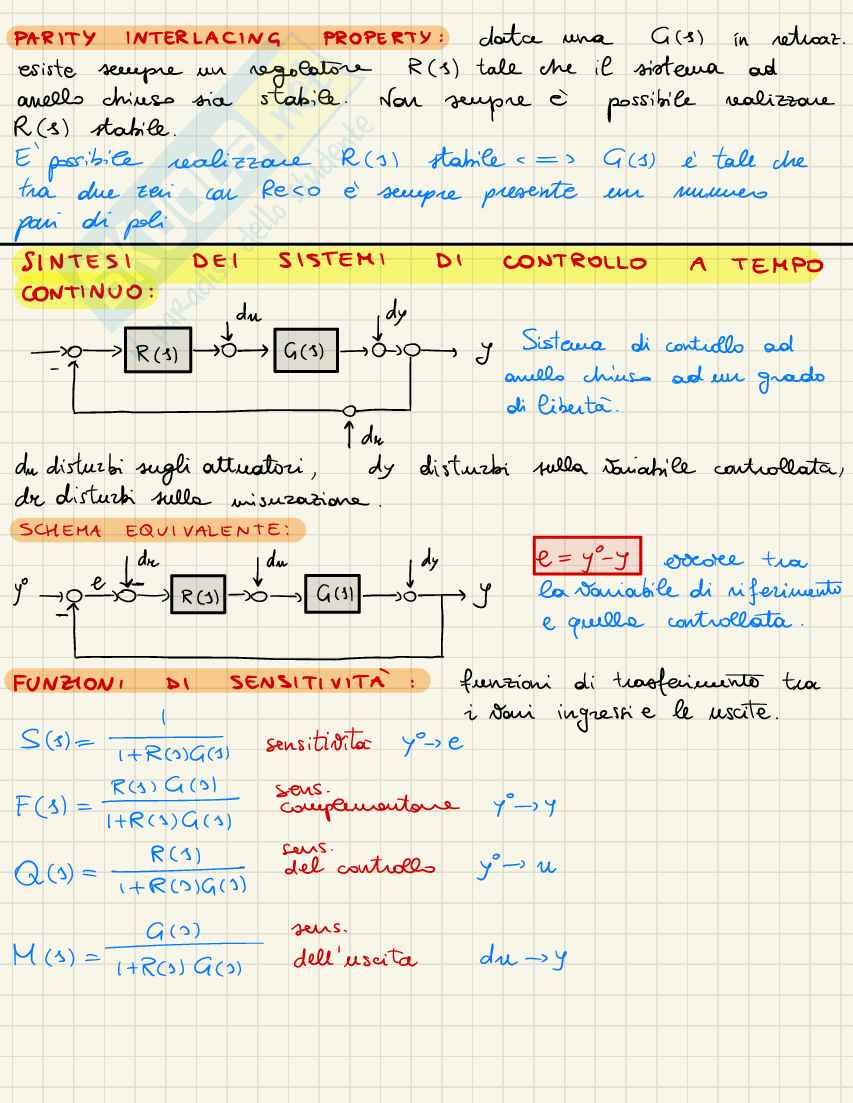 PARITY INTERLACING PROPERTY: data una G(s) in retroaz.
esiste sempre un regolatore R(s) tale che il sistema ad
anello chiuso sia stabile. Non sempre è possibile realizzare
R(s) stabile.
E' possibile realizzare R(s) stabile <=> G(s) è tale che
tra due zeri con Re<0 è sempre presente un numero
pari di poli
SINTESI DEI SISTEMI DI CONTROLLO A TEMPO
CONTINUO:
du dy
- R(s) G(s) y
dr
Sistema di controllo ad
anello chiuso ad un grado
di libertà.
du disturbi sugli attuatori, dy disturbi sulla variabile controllata,
dr disturbi sulla misurazione.
SCHEMA EQUIVALENTE:
dr du dy
y° e - R(s) G(s) y
-
e = y°-y errore tra
la variabile di riferimento
e quella controllata.
FUNZIONI DI SENSITIVITÀ: funzioni di trasferimento tra
i vari ingressi e le uscite.
S(s) = 1 / 1+R(s)G(s) sensitività y°→e
F(s) = R(s) G(s) / 1+R(s)G(s) sens. complementare y°→y
Q(s) = R(s) / 1+R(s)G(s) sens. del controllo y°→u
M(s) = G(s) / 1+R(s) G(s) sens. dell'uscita du→y